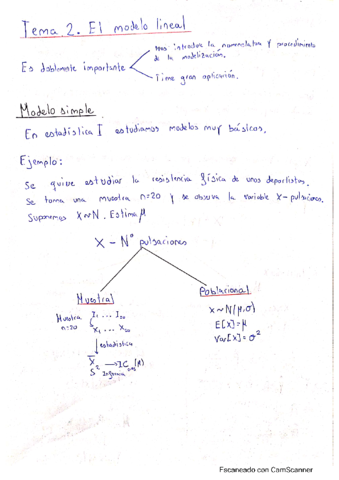 Tema 2. El modelo lineal
Nos introduce la nomenclatura y procedimiento
de la modelización.
Es doblemente importante
Tiene gran aplicación.
Modelo simple
En estadística I estudiamos modelos muy básicos.
Ejemplo:
Se quiere estudiar la resistencia física de unos deportistas.
Se toma una muestra n=20 y se observa la variable X- pulsaciones.
Suponemos X~N. Estima μ
X - Nº pulsaciones
Muestral
Muestra I₁ ... I₂₀
n=20
X₁ ... X₂₀
estadística
X̄
S² Inferencia → IC (μ)
Poblacional
X ~ N(μ,σ)
E[X]=μ
Var[X]=σ²
Escaneado con CamScanner